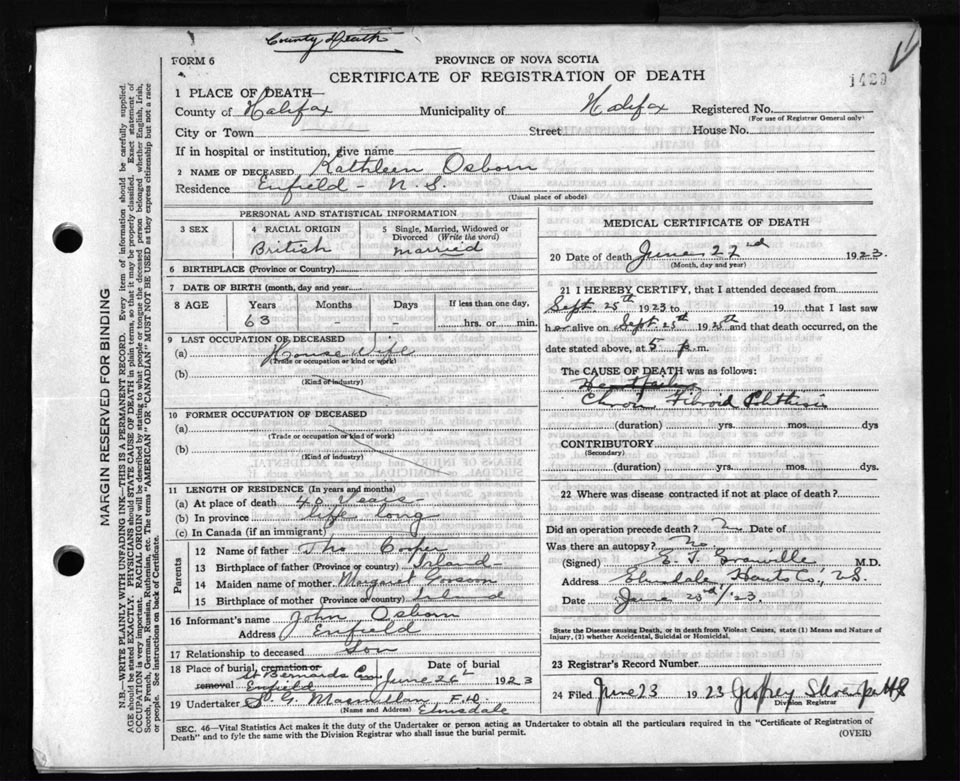 County Death
FORM 6
PROVINCE OF NOVA SCOTIA
CERTIFICATE OF REGISTRATION OF DEATH
1429
1 PLACE OF DEATH—
County of Halifax Municipality of Halifax Registered No.
(For use of Registrar General only)
City or Town Street House No.
If in hospital or institution, give name
2 NAME OF DECEASED Kathleen Osborn
Residence Enfield - N.S.
(Usual place of abode)
PERSONAL AND STATISTICAL INFORMATION
3 SEX
4 RACIAL ORIGIN
British
5 Single, Married, Widowed or Divorced (Write the word)
married
6 BIRTHPLACE (Province or Country)
7 DATE OF BIRTH (month, day and year)
8 AGE Years Months Days If less than one day,
63 - - hrs. or min.
9 LAST OCCUPATION OF DECEASED
(a) House Wife
(Trade or occupation or kind or work)
(b)
(Kind of industry)
10 FORMER OCCUPATION OF DECEASED
(a)
(Trade or occupation or kind of work)
(b)
(Kind of industry)
11 LENGTH OF RESIDENCE (In years and months)
(a) At place of death 40 Years
(b) In province life long
(c) In Canada (if an immigrant)
Parents
12 Name of father Tho Cooper
13 Birthplace of father (Province or country) Irland
14 Maiden name of mother Margaret
15 Birthplace of mother (Province or country) Ireland
16 Informant's name John Osborn
Address Enfield
17 Relationship to deceased Son
18 Place of burial, cremation or removal St Bernards Enfield
Date of burial June 26th 1923
19 Undertaker S. G. Macmillan F.H.
(Name and Address) Elmsdale
MEDICAL CERTIFICATE OF DEATH
20 Date of death June 22nd 1923.
(Month, day and year)
21 I HEREBY CERTIFY, that I attended deceased from
Sept. 25th 1923 to 19 that I last saw
her alive on Sept 25th 19 and that death occurred, on
date stated above, at 5 p.m.
The CAUSE OF DEATH was as follows:
Heart failure
Chron Fibroid Phthisis
(duration) yrs. mos. dys
CONTRIBUTORY
(Secondary)
(duration) yrs. mos. dys.
22 Where was disease contracted if not at place of death?
Did an operation precede death? Date of
Was there an autopsy? No
(Signed) E. T. Granville M.D.
Address Elmsdale, Hants Co., N.S.
Date June 23rd/'23.
State the Disease causing Death, or in death from Violent Causes, state (1) Means and Nature of
Injury, (2) whether Accidental, Suicidal or Homicidal.
23 Registrar's Record Number
24 Filed June 23 1923 Geoffrey
Division Registrar
SEC. 46—Vital Statistics Act makes it the duty of the Undertaker or person acting as Undertaker to obtain all the particulars required in the "Certificate of Registration of
Death" and to fyle the same with the Division Registrar who shall issue the burial permit. (OVER)
MARGIN RESERVED FOR BINDING
N.B.—WRITE PLAINLY WITH UNFADING INK—THIS IS A PERMANENT RECORD. Every item of information should be carefully supplied.
AGE should be stated EXACTLY. PHYSICIANS should STATE CAUSE OF DEATH in plain terms, so that it may be properly classified. Exact statement of
OCCUPATION is very important. RACIAL ORIGIN will be described by stating to what people or tongue the deceased person belonged whether English, Irish,
Scotch, French, German, Russian, Ruthenian, etc. The terms "AMERICAN" OR "CANADIAN" MUST NOT BE USED as they express citizenship but not a race
or people. See instructions on back of Certificate.